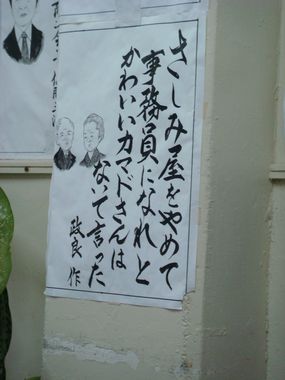 さしみ屋をやめて
事務員になれと
かわいいカマドさんは
ないて言った
政良 作